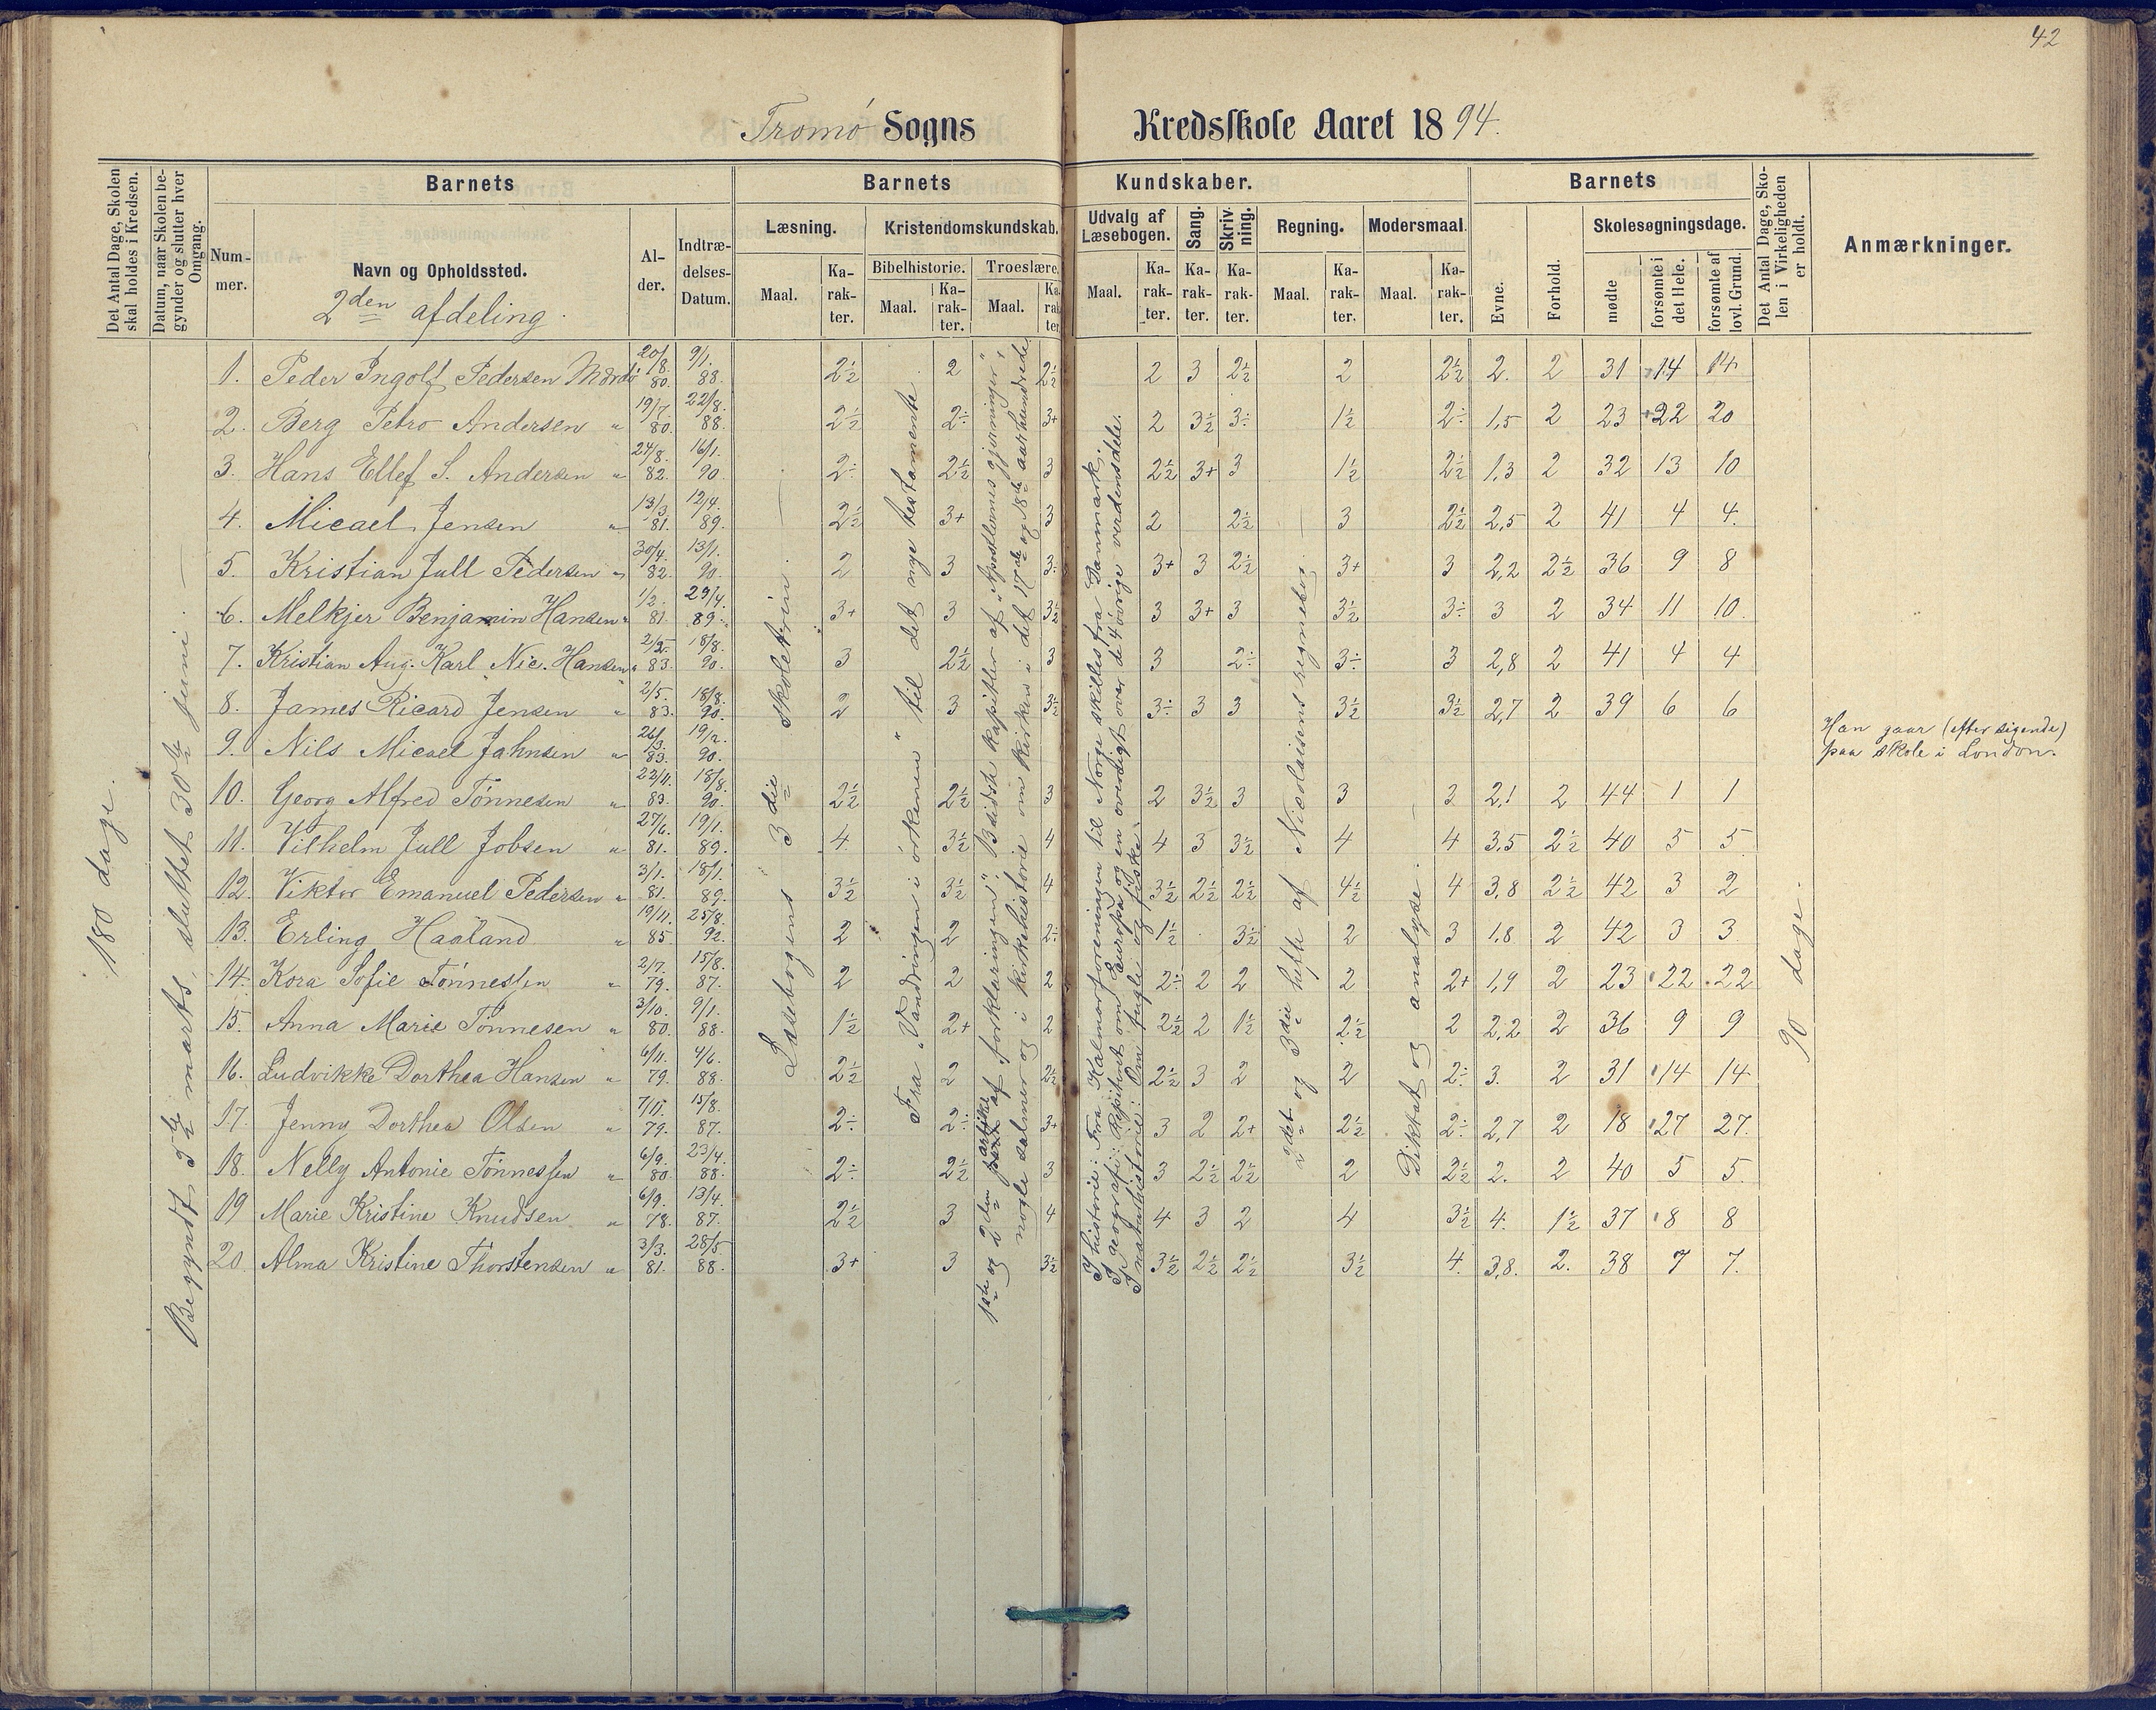 42
Tromø Sogns Kredsskole Aaret 1894.
Det Antal Dage, Skolen skal holdes i Kredsen.
Datum, naar Skolen begynder og slutter hver Omgang.
Barnets
Nummer.
Navn og Opholdssted.
2den afdeling.
Alder.
Indtrædelses-Datum.
Barnets Kundskaber.
Læsning.
Maal.
Karakter.
Kristendomskundskab.
Bibelhistorie.
Maal.
Karakter.
Troeslære.
Maal.
Karakter.
Udvalg af Læsebogen.
Maal.
Karakter.
Sang.
Karakter.
Skrivning.
Karakter.
Regning.
Maal.
Karakter.
Modersmaal.
Maal.
Karakter.
Barnets
Evne.
Forhold.
Skolesøgningsdage.
mødte
forsømte i det Hele.
forsømte af lovl. Grund.
Det Antal Dage, Skolen i Virkeligheden er holdt.
Anmærkninger.
180 dage.
Begyndt 5te marts, sluttet 30te juni.
Læsebogens 3die skoletrin.
Fra "Vandringen i ørkenen" til det nye testamente
1ste og 2den artikel af "forklaringen". Bædisk kapitler af "Apostlernes gjerninger",
nogle salmer og i kirkehistorie om kirken i det 17de og 18de aarhundrede
I historie: Fra Kalmarforeningen til Norge skilles fra Danmark.
I geografi: Repitert om Europa og en oversigt over de 4 øvrige verdensdele.
I naturhistorie: Om fugle og fiske.
2det og 3die hefte af Nicolaisens regnebog
Diktat og analyse.
90 dage.
1. Peder Ingolf Pedersen Mærdø 20/8. 80. 9/1. 88. 2½ 2 2½ 2 3 2½ 2 2½ 2. 2 31 14 14
2. Berg Petro Andersen " 19/7. 80. 22/8. 88. 2½ 2÷ 3+ 2 3½ 3÷ 1½ 2÷ 1,5 2 23 22 20
3. Hans Ellef S. Andersen " 24/8. 82. 16/1. 90. 2÷ 2½ 3 2½ 3+ 3 1½ 2½ 1,3 2 32 13 10
4. Micael Jensen " 13/3. 81. 12/4. 89. 2½ 3+ 3 2 2½ 3 2½ 2,5 2 41 4 4.
5. Kristian Jull Pedersen " 30/4. 82. 13/1. 90. 2 3 3÷ 3+ 3 2½ 3+ 3 2,2 2½ 36 9 8
6. Melkjer Benjamin Hansen " 1/2. 81. 29/4. 89. 3+ 3 3½ 3 3+ 3 3½ 3÷ 3 2 34 11 10.
7. Kristian Aug. Karl Nic. Hansen " 83. 18/8. 90. 3 2½ 3 3 2÷ 3÷ 3 2,8 2 41 4 4
8. James Ricard Jensen " 2/5. 83. 18/8. 90. 2 3 3½ 3÷ 3 3 3½ 3½ 2,7 2 39 6 6
9. Nils Micael Jahnsen " 26/3. 83. 19/2. 90. Han gaar (efter sigende)
paa skole i London.
10. Georg Alfred Tønnesen " 22/11. 83. 18/8. 90. 2½ 2½ 3 2 3½ 3 3 3 2,1 2 44 1 1
11. Vilhelm Jull Jobsen " 27/6. 81. 19/1. 89. 4 3½ 4 4 3 3½ 4 4 3,5 2½ 40 5 5
12. Viktor Emanuel Pedersen " 3/1. 81. 18/1. 89. 3½ 3½ 4 3½ 2½ 2½ 4½ 4 3,8 2½ 42 3 2
13. Erling Haaland " 19/11. 85. 25/8. 92. 2 2 2÷ 1½ 3½ 2 3 1,8 2 42 3 3
14. Kora Sofie Tønnessen " 2/7. 79. 15/8. 87. 2 2 2 2÷ 2 2 2 2+ 1,9 2 23 22 22
15. Anna Marie Tønnesen " 3/10. 80. 9/1. 88. 1½ 2+ 2 2½ 2 1½ 2½ 2 2,2 2 36 9 9
16. Ludvikke Dorthea Hansen " 6/11. 79. 4/6. 88. 2½ 2 2½ 2½ 3 2 2 2÷ 3. 2 31 14 14
17. Jenny Dorthea Olsen " 7/11. 79. 15/8. 87. 2÷ 2÷ 3+ 3 2 2+ 2½ 2÷ 2,7 2 18 27 27.
18. Nelly Antonie Tønnessen " 6/9. 80. 23/4. 88. 2÷ 2½ 3 3 2½ 2½ 2 2½ 2. 2 40 5 5.
19 Marie Kristine Knudsen " 6/9. 78. 13/4. 87. 2½ 3 4 4 3 2 4 3½ 4. 1½ 37 8 8
20. Alma Kristine Thorstensen " 3/3. 81. 28/5 88. 3+ 3 3½ 3½ 2½ 2½ 3½ 4. 3,8. 2. 38 7 7.